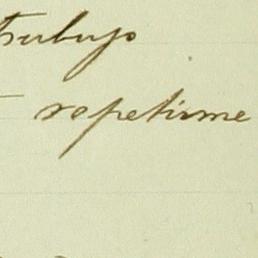 trabajo
repetirme